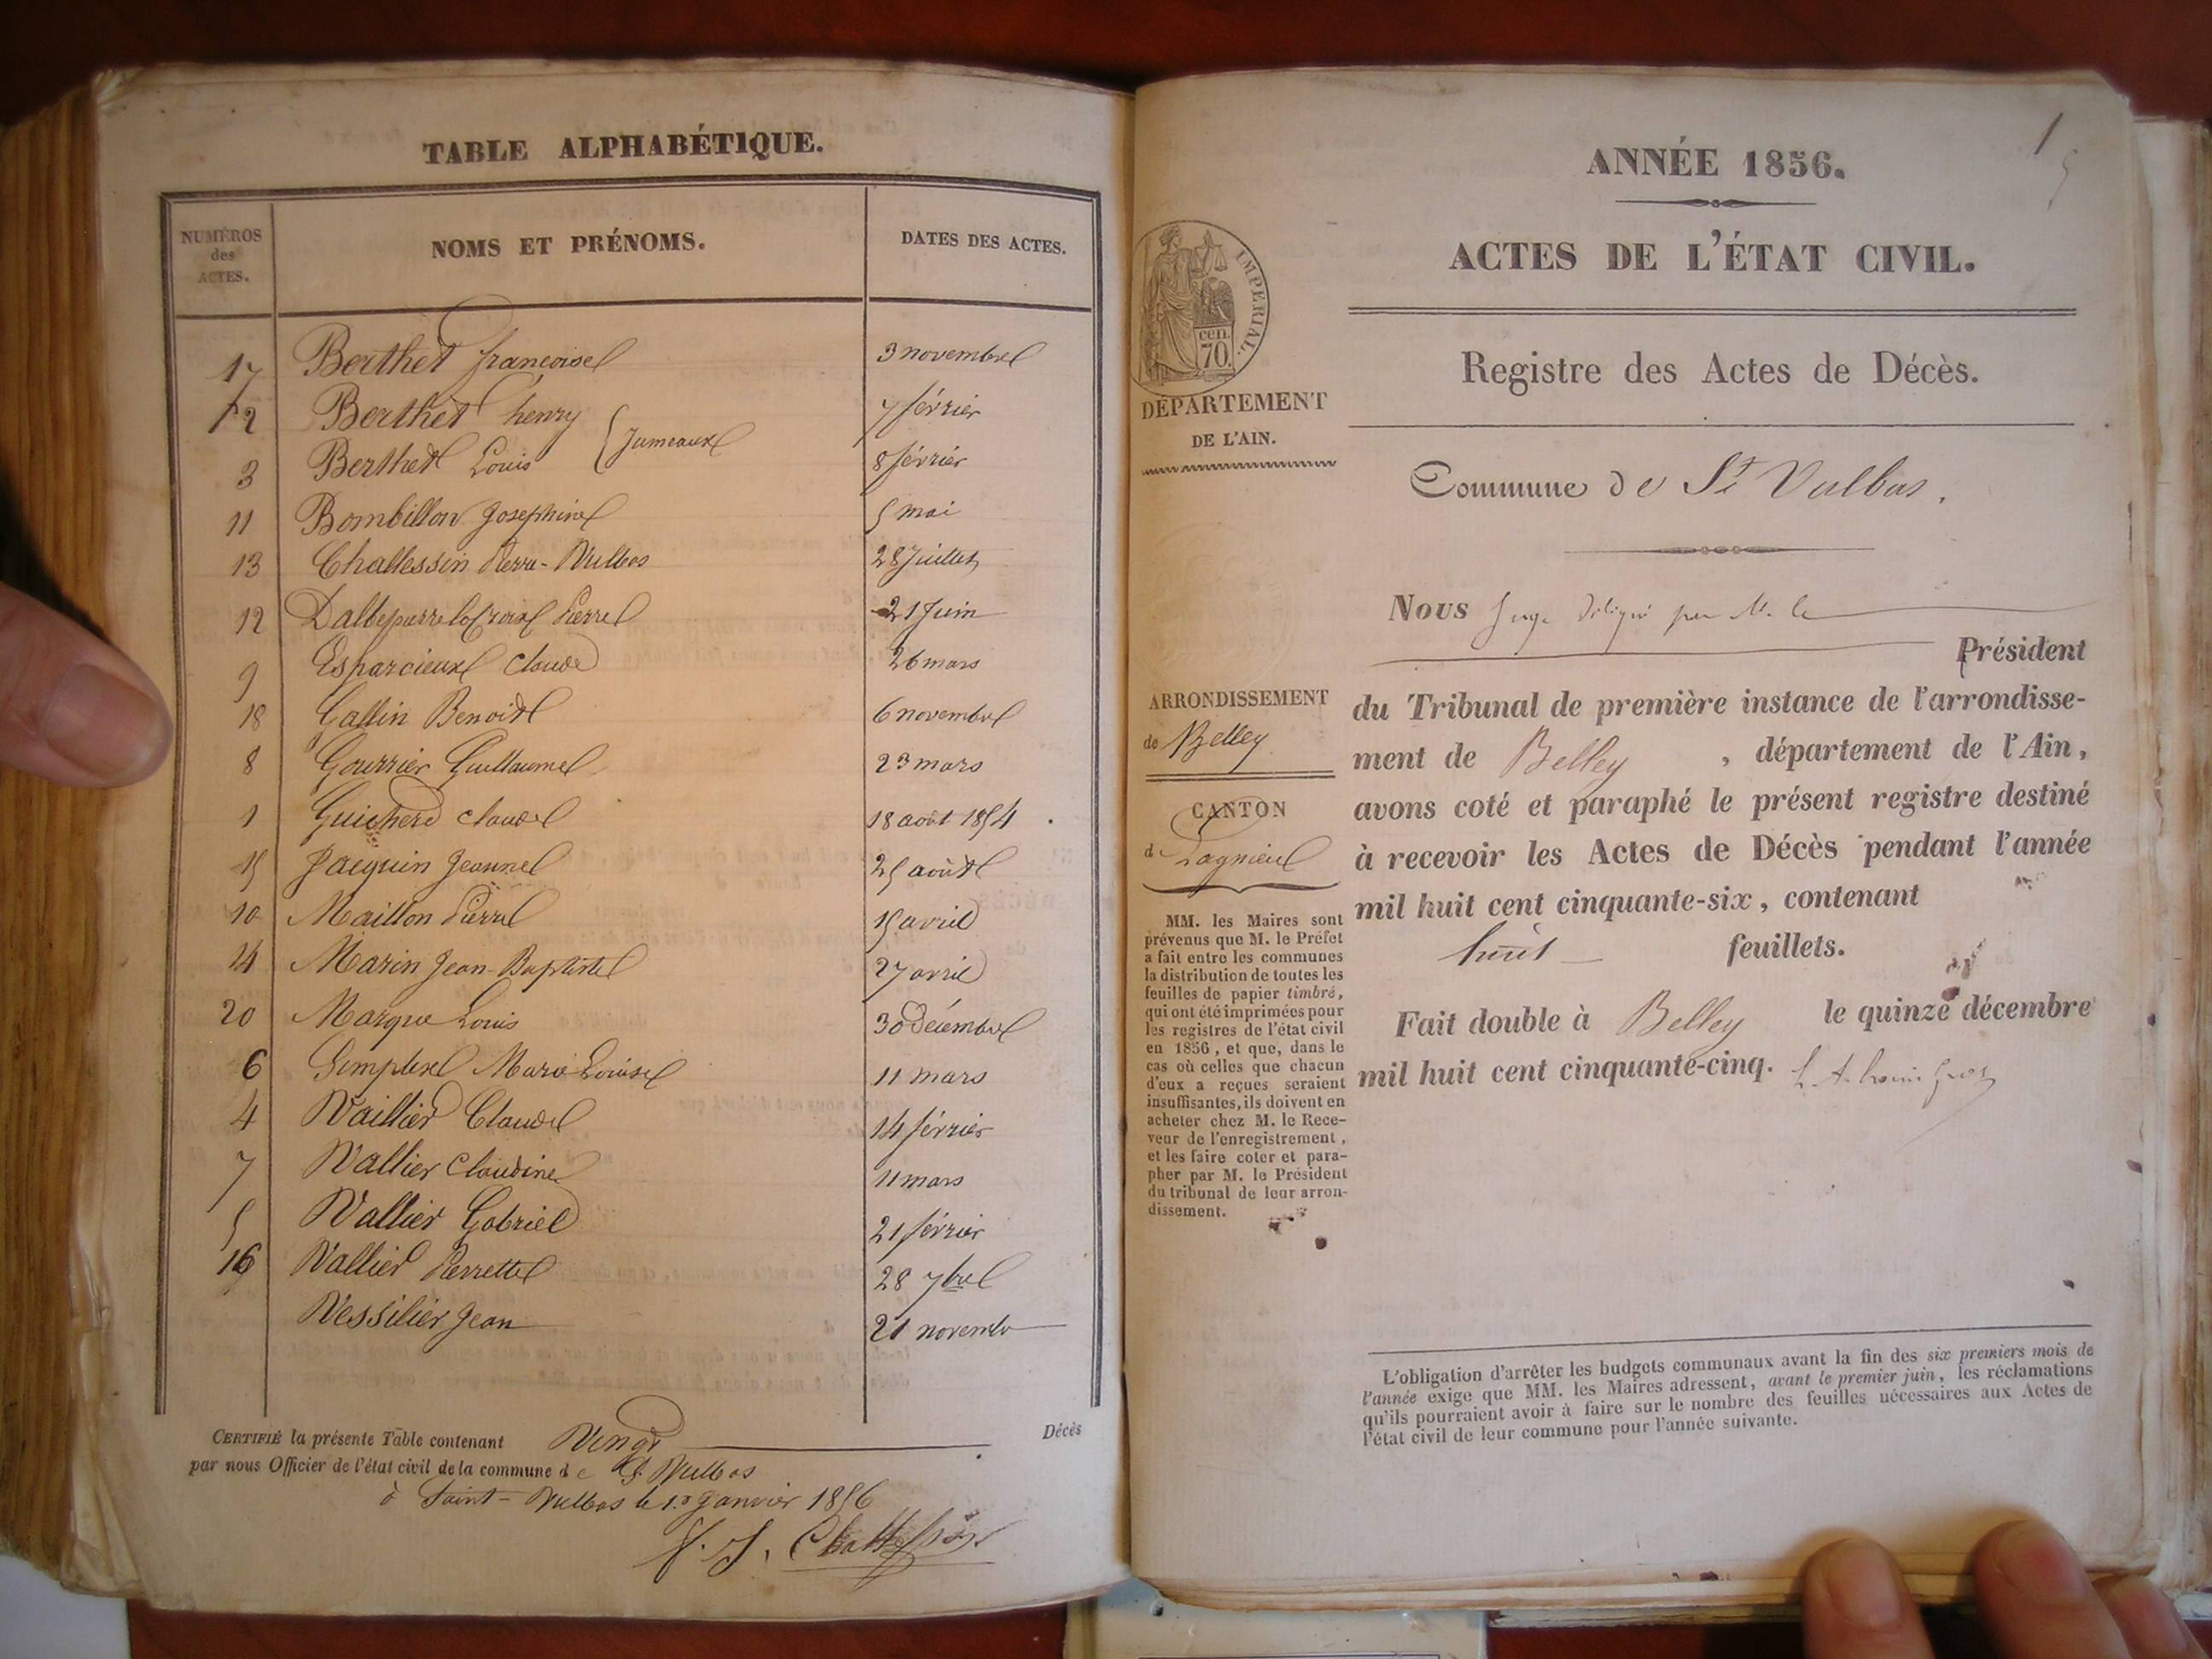 TABLE ALPHABÉTIQUE.
NUMÉROS des ACTES.
NOMS ET PRÉNOMS.
DATES DES ACTES.
17 Berthet françoise 3 novembre
2 Berthet henry 7 février
Jumeaux
3 Berthet Louis 8 février
11 Bombillon Josephine 5 mai
13 Challessin Pierre-Vulbas 28 Juillet
12 Pierre 21 Juin
9 Esparcieux Claude 26 mars
18 Gallin Benoit 6 novembre
8 Gourrier Guillaume 23 mars
1 Guicherd Claude 18 août 1854
15 Jacquin Jeanne 25 août
10 Maillon Pierre 15 avril
14 Marin Jean-Baptiste 27 avril
20 Marque Louis 30 décembre
6 Simplex Marie Louise 11 mars
4 Vallier Claude 14 février
7 Vallier Claudine 11 mars
5 Vallier Gabriel 21 février
16 Vallier Pierrette 28 7bre
Vessilier Jean 21 novemb
CERTIFIÉ la présente Table contenant Vingt Décès
par nous Officier de l'état civil de la commune de St. Vulbas
à Saint-Vulbas le 1er Janvier 1856
1
ANNÉE 1856.
ACTES DE L'ÉTAT CIVIL.
IMPERIAL.
cen.
70.
Registre des Actes de Décès.
DÉPARTEMENT
DE L'AIN.
Commune de St Vulbas.
Nous Juge délégué par M. le
Président
ARRONDISSEMENT
de Belley
CANTON
de Lagnieu
du Tribunal de première instance de l'arrondisse-
ment de Belley, département de l'Ain,
avons coté et paraphé le présent registre destiné
à recevoir les Actes de Décès pendant l'année
mil huit cent cinquante-six, contenant
huit feuillets.
Fait double à Belley le quinze décembre
mil huit cent cinquante-cinq.
MM. les Maires sont
prévenus que M. le Préfet
a fait entre les communes
la distribution de toutes les
feuilles de papier timbré,
qui ont été imprimées pour
les registres de l'état civil
en 1856, et que, dans le
cas où celles que chacun
d'eux a reçues seraient
insuffisantes, ils doivent en
acheter chez M. le Rece-
veur de l'enregistrement,
et les faire coter et para-
pher par M. le Président
du tribunal de leur arron-
dissement.
L'obligation d'arrêter les budgets communaux avant la fin des six premiers mois de
l'année exige que MM. les Maires adressent, avant le premier juin, les réclamations
qu'ils pourraient avoir à faire sur le nombre des feuilles nécessaires aux Actes de
l'état civil de leur commune pour l'année suivante.